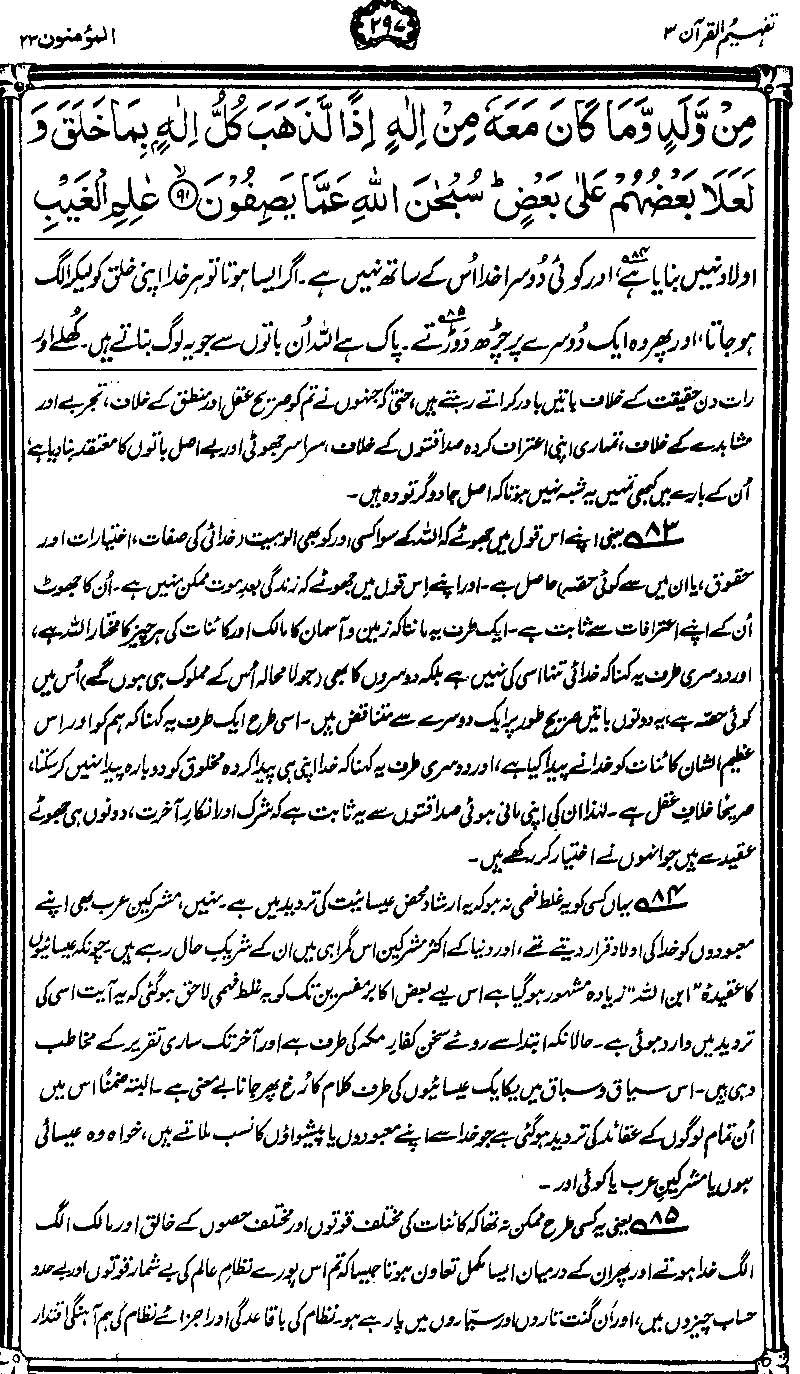 تفہیم القرآن ۳
۲۹۷
المؤمنون ۲۳
مِنْ وَّلَدٍ وَّمَا كَانَ مَعَهٗ مِنْ اِلٰهٍ اِذًا لَّذَهَبَ كُلُّ اِلٰهٍۭ بِمَا خَلَقَ وَ
لَعَلَا بَعْضُهُمْ عَلٰى بَعْضٍ ؕ سُبْحٰنَ اللّٰهِ عَمَّا يَصِفُوْنَ ۙ﴿۹۱﴾ عٰلِمِ الْغَيْبِ
اولاد نہیں بنایا ہے،۸۴ اور کوئی دُوسرا خدا اُس کے ساتھ نہیں ہے۔ اگر ایسا ہوتا تو ہر خدا اپنی خلق کو لیکر الگ
ہو جاتا، اور پھر وہ ایک دُوسرے پر چڑھ دَوڑتے۸۵۔ پاک ہے اللہ اُن باتوں سے جو یہ لوگ بناتے ہیں۔ کُھلے اور
رات دن حقیقت کے خلاف باتیں باور کراتے رہتے ہیں، حتیٰ کہ جنہوں نے تم کو صریح عقل اور منطق کے خلاف، تجربے اور
مشاہدے کے خلاف، تمہاری اپنی اعتراف کردہ صداقتوں کے خلاف، سراسر جھوٹی اور بے اصل باتوں کا معتقد بنا دیا ہے،
اُن کے بارے میں کبھی تمہیں یہ شبہ نہیں ہوتا کہ اصل جادوگر تو وہ ہیں۔
۸۳ یعنی اپنے اس قول میں جھوٹے کہ اللہ کے سوا کسی اور کو بھی الوہیت (خدائی کی صفات، اختیارات اور
حقوق، یا ان میں سے کوئی حصہ) حاصل ہے۔ اور اپنے اِس قول میں جھوٹے کہ زندگی بعدِ موت ممکن نہیں ہے۔ اُن کا جھوٹ
اُن کے اپنے اعترافات سے ثابت ہے۔ ایک طرف یہ ماننا کہ زمین و آسمان کا مالک اور کائنات کی ہر چیز کا مختار اللہ ہے،
اور دوسری طرف یہ کہنا کہ خدائی تنہا اسی کی نہیں ہے بلکہ دوسروں کا بھی (جو لا محالہ اُس کے مملوک ہی ہوں گے) اُس میں
کوئی حصہ ہے، یہ دونوں باتیں صریح طور پر ایک دوسرے سے متناقض ہیں۔ اسی طرح ایک طرف یہ کہنا کہ ہم کو اور اس
عظیم الشان کائنات کو خدا نے پیدا کیا ہے، اور دوسری طرف یہ کہنا کہ خدا اپنی ہی پیدا کردہ مخلوق کو دوبارہ پیدا نہیں کر سکتا،
صریحًا خلافِ عقل ہے۔ لہٰذا ان کی اپنی مانی ہوئی صداقتوں سے یہ ثابت ہے کہ شرک اور انکارِ آخرت، دونوں ہی جھوٹے
عقیدے ہیں جو انہوں نے اختیار کر رکھے ہیں۔
۸۴ یہاں کسی کو یہ غلط فہمی نہ ہو کہ یہ ارشاد محض عیسائیت کی تردید میں ہے۔ نہیں، مشرکینِ عرب بھی اپنے
معبودوں کو خدا کی اولاد قرار دیتے تھے، اور دنیا کے اکثر مشرکین اس گمراہی میں ان کے شریکِ حال رہے ہیں۔ چونکہ عیسائیوں
کا عقیدۂ "ابن اللہ" زیادہ مشہور ہو گیا ہے اس لیے بعض اکابر مفسرین تک کو یہ غلط فہمی لاحق ہو گئی کہ یہ آیت اسی کی
تردید میں وارد ہوئی ہے۔ حالانکہ ابتدا سے روئے سخن کفارِ مکہ کی طرف ہے اور آخر تک ساری تقریر کے مخاطب
وہی ہیں۔ اس سیاق و سباق میں یکایک عیسائیوں کی طرف کلام کا رُخ پھر جانا بے معنی ہے۔ البتہ ضمنًا اس میں
اُن تمام لوگوں کے عقائد کی تردید ہو گئی ہے جو خدا سے اپنے معبودوں یا پیشواؤں کا نسب ملاتے ہیں، خواہ وہ عیسائی
ہوں یا مشرکینِ عرب یا کوئی اور۔
۸۵ یعنی یہ کسی طرح ممکن نہ تھا کہ کائنات کی مختلف قوتوں اور مختلف حصوں کے خالق اور مالک الگ
الگ خدا ہوتے اور پھر ان کے درمیان ایسا مکمل تعاون ہوتا جیسا کہ تم اس پورے نظامِ عالم کی بے شمار قوتوں اور بے حد و
حساب چیزوں میں، اور اَن گنت تاروں اور سیّاروں میں پا رہے ہو۔ نظام کی باقاعدگی اور اجزائے نظام کی ہم آہنگی اقتدار